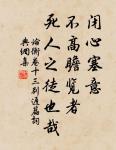 闭心塞意
不高瞻览者
死人之徒也哉
论衡卷十三别通篇词
典网集